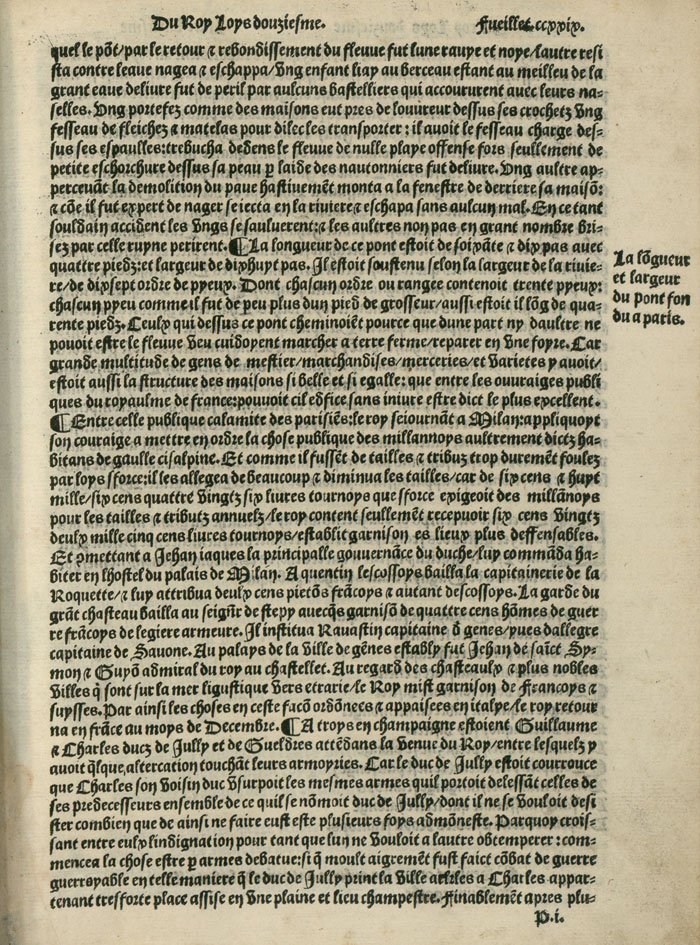 Du Roy Loys douziesme. Fueillet. ccxxix.
quel le põt/par le retour ⁊ rebondissement du fleuue fut lune rauye et noye/lautre resi
sta contre leaue nagea ⁊ eschappa/vng enfant liay au berceau estant au meilleu de la
grant eaue deliure fut de peril par aulcuns bastelliers qui accoururent auec leurs na-
selles. Ung portefez comme des maisons eut pres de louureur dessus ses crochetz vng
fesseau de fleichez ⁊ matelas pour dilec les transporter: il auoit le fesseau charge des-
sus ses espaulles: trebucha dedens le fleuue de nulle playe offense fors seullement de
petite eschorchure dessus sa peau p laide des nautonniers fut deliure. Ung aultre ap-
perceuãt la demolition du paue hastiuemẽt monta a la fenestre de derriere sa maisõ:
⁊ cõe il fut expert de nager se iecta en la riuiere ⁊ eschapa sans aulcun mal. En ce tant
souldain accident les vngs se sauluerent: ⁊ les aultres non pas en grant nombre bri-
sez par celle ruyne perirent. ¶ La longueur de ce pont estoit de soixãte ⁊ dix pas auec
quattre piedz: et largeur de dixhuyt pas. Il estoit soustenu selon la largeur de la riuie-
re/de dixsept ordre de pyeux. Dont chascun ordre ou rangee contenoit trente pyeux:
chascun pyeu comme il fut de peu plus dun pied de grosseur/aussi estoit il lõg de qua-
rente piedz. Ceulx qui dessus ce pont cheminoiẽt pource que dune part ny daultre ne
pouoit estre le fleuue veu cuidoyent marcher a terre ferme/reparer en vne foyre. Car
grande multitude de gens de mestier/marchandises/merceries/et varietes y auoit/
estoit aussi la structure des maisons si belle et si egalle: que entre les ouuraiges publi
ques du royaulme de france: pouuoit cil edfice sans iniure estre dict le plus excellent.
¶ Entre celle publique calamite des parisiẽs: le roy seiournãt a Milan: appliquoyt
son couraige a mettre en ordre la chose publique des millannoys aultrement dictz ha-
bitans de gaulle cisalpine. Et comme il fussẽt de tailles ⁊ tribuz trop duremẽt foulez
par loys sforce: il les allegea de beaucoup ⁊ diminua les tailles/car de six cens ⁊ huyt
mille/six cens quattre vingtz six liures tournoys que sforce exigeoit des millãnoys
pour les tailles ⁊ tributz annuelz/le roy content seullement recepuoir six cens vingtz
deulx mille cinq cens liures tournoys/establit garnison es lieux plus deffensables.
Et omettant a Jehan iaques la principalle gouuernãce du duche/luy commãda ha-
biter en lhostel du palais de Milan. A quentin lescossoys bailla la capitainerie de la
Roquette/⁊ luy attribua deulx cens pietõs frãcoys ⁊ autant descossoys. La garde du
grãt chasteau bailla au seignr̃ de stepy auecq̃s garnisõ de quattre cens hõmes de guer
re frãcoys de legiere armeure. Il institua Rauastin capitaine õ genes/yues dallegre
capitaine de Sauone. Au palays de la ville de gẽnes estably fut Jehan de saĩct Sy-
mon ⁊ Guyõ admiral du roy au chastellet. Au regard des chasteaulx ⁊ plus nobles
villes q̃ sont sur la mer ligustique vers etrarie/le Roy mist garnison de Francoys ⁊
suysses. Par ainsi les choses en ceste facõ ordõnees ⁊ appaisees en italye/le roy retour
na en frãce au moys de Decembre. ¶ A troys en champaigne estoient Guillaume
⁊ Charles ducz de Jully et de Gueldres attẽdans la venue du Roy/entre lesquelz y
auoit q̃lque altercation touchãt leurs armoyries. Car le duc de Jully estoit courrouce
que Charles son voisin duc vsurpoit les mesmes armes quil portoit delessãt celles de
ses predecesseurs ensemble de ce quil se nõmoit duc de Jully/dont il ne se vouloit desi
ster combien que de ainsi ne faire eust este plusieurs foys admõneste. Parquoy crois-
sant entre eulx lindignation pour tant que lun ne vouloit a lautre obtemperer: com-
mencea la chose estre p armes debatue: si q̃ moult aigremẽt fust faict cõbat de guerre
guerroyable en telle maniere q̃ le duc de Jully print la ville a Charles appar-
tenant tresforte place assise en vne plaine et lieu champestre. Finablemẽt apres plu-
P.i.
La lõgueur
et largeur
du pont fon
du a paris.